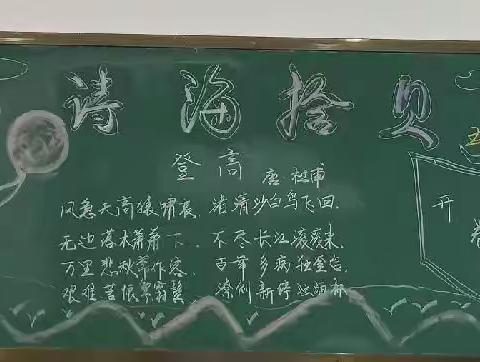 诗海拾贝
登高
唐 杜甫
风急天高猿啸哀，渚清沙白鸟飞回.
无边落木萧萧下，不尽长江滚滚来.
万里悲秋常作客，百年多病独登台.
艰难苦恨繁霜鬓，潦倒新停浊酒杯.
开
卷